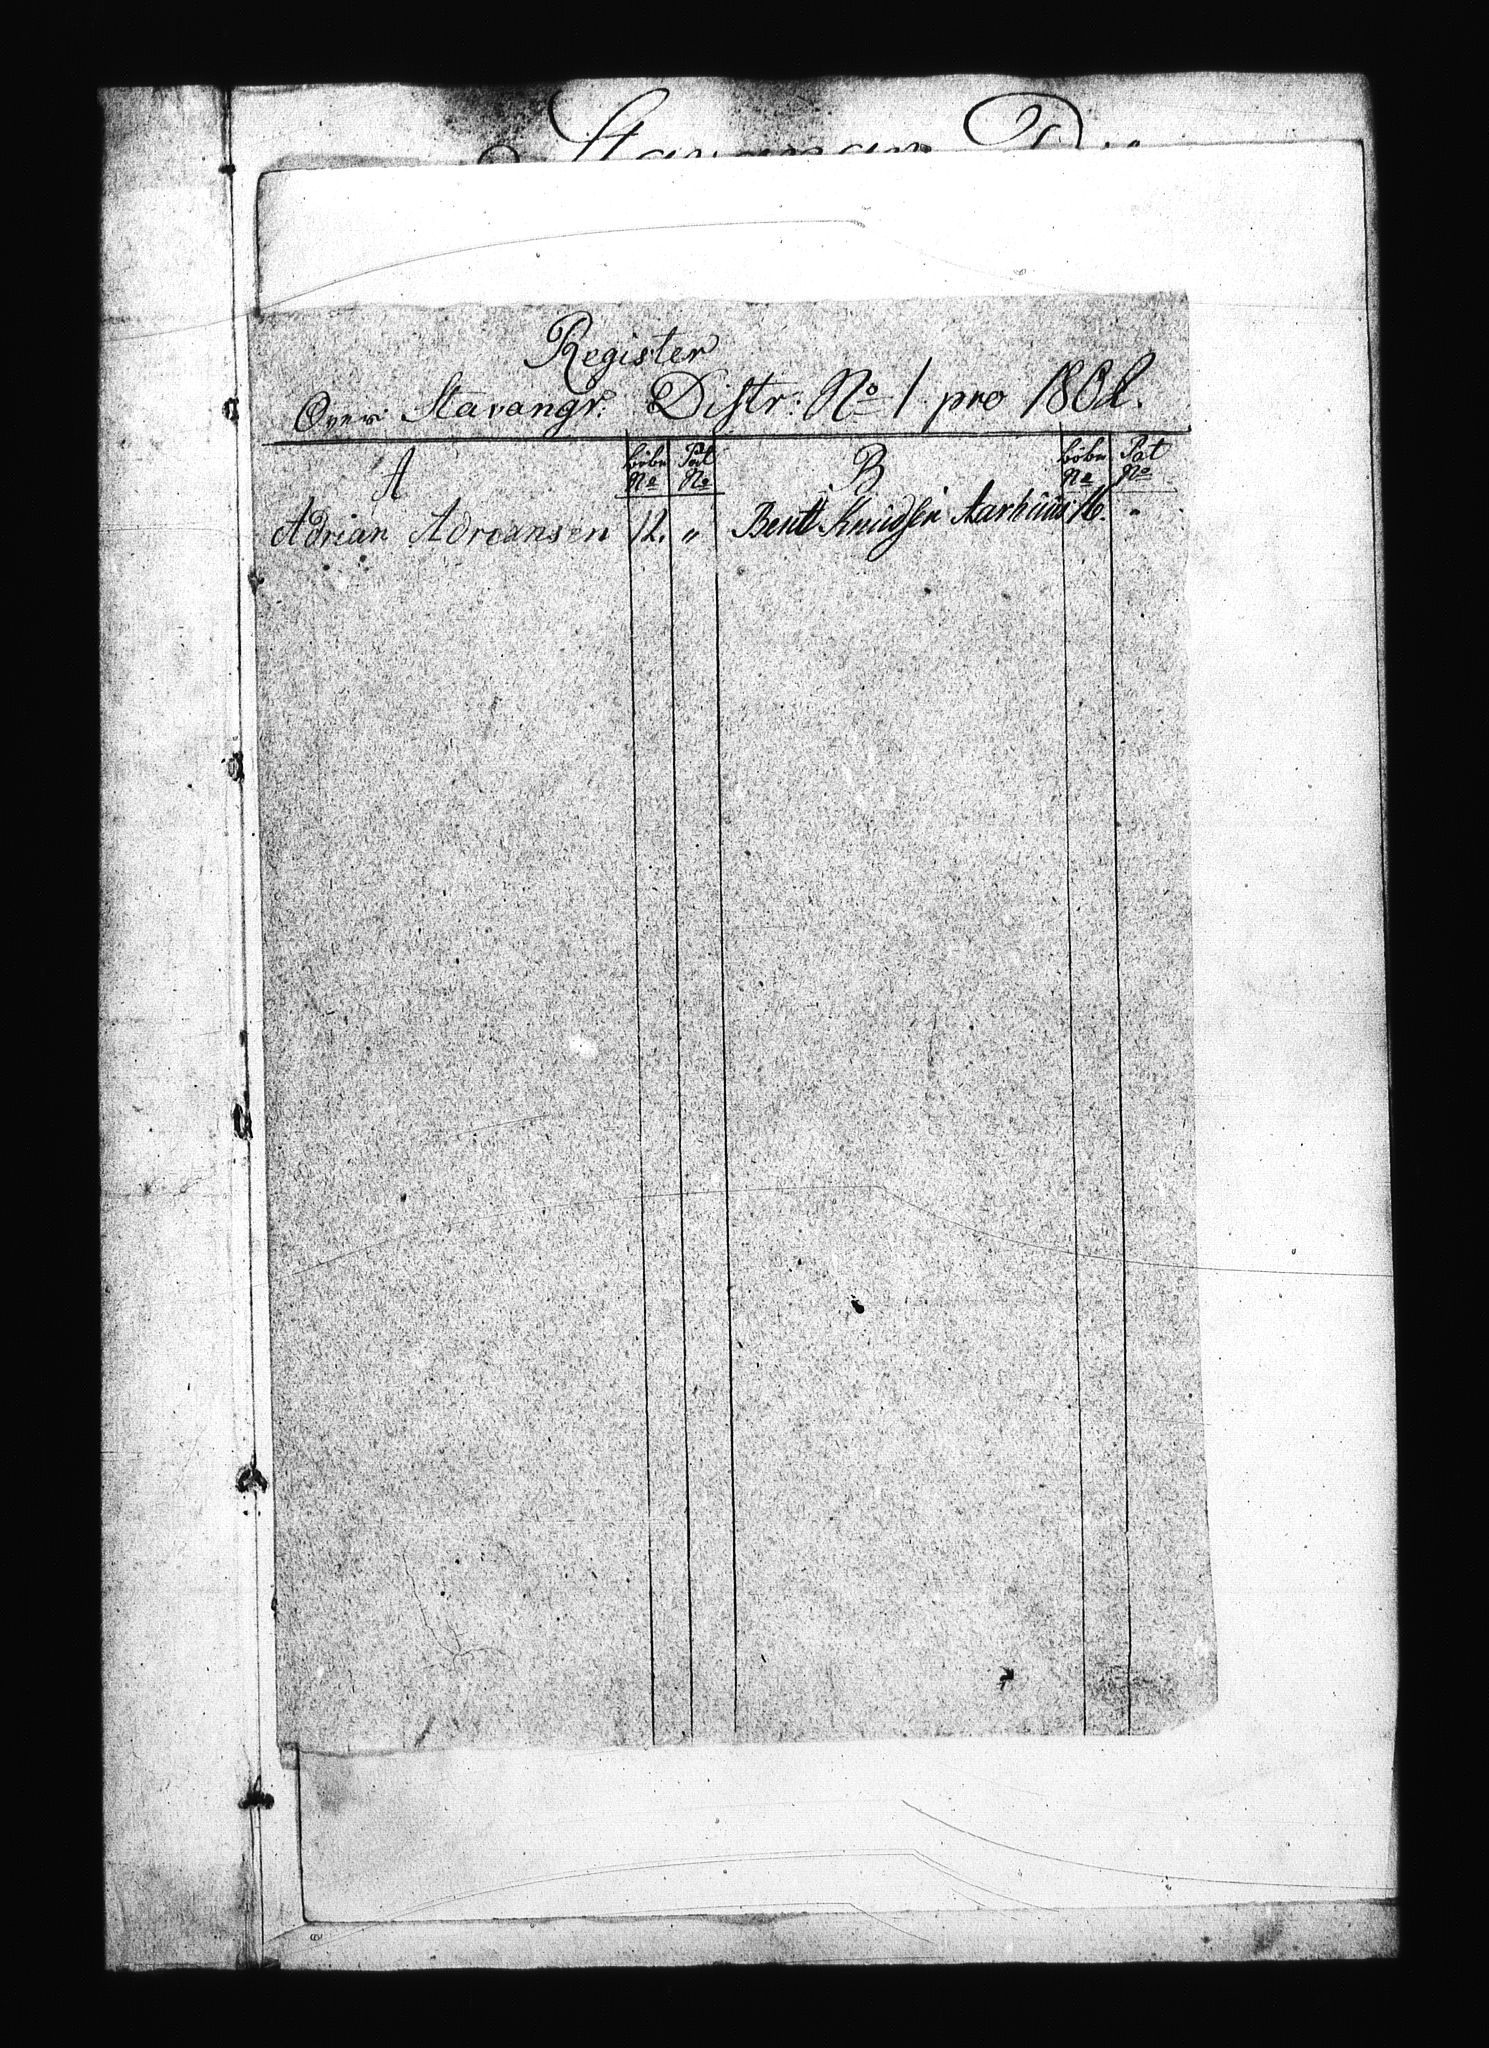 Register
Over Stavangr: Distr: No 1 pro 1802.
A löbe No Pat No B löbe No Pat No
Adrian Adreansen 12. " Bent Knudsen Aarhuus 16. "